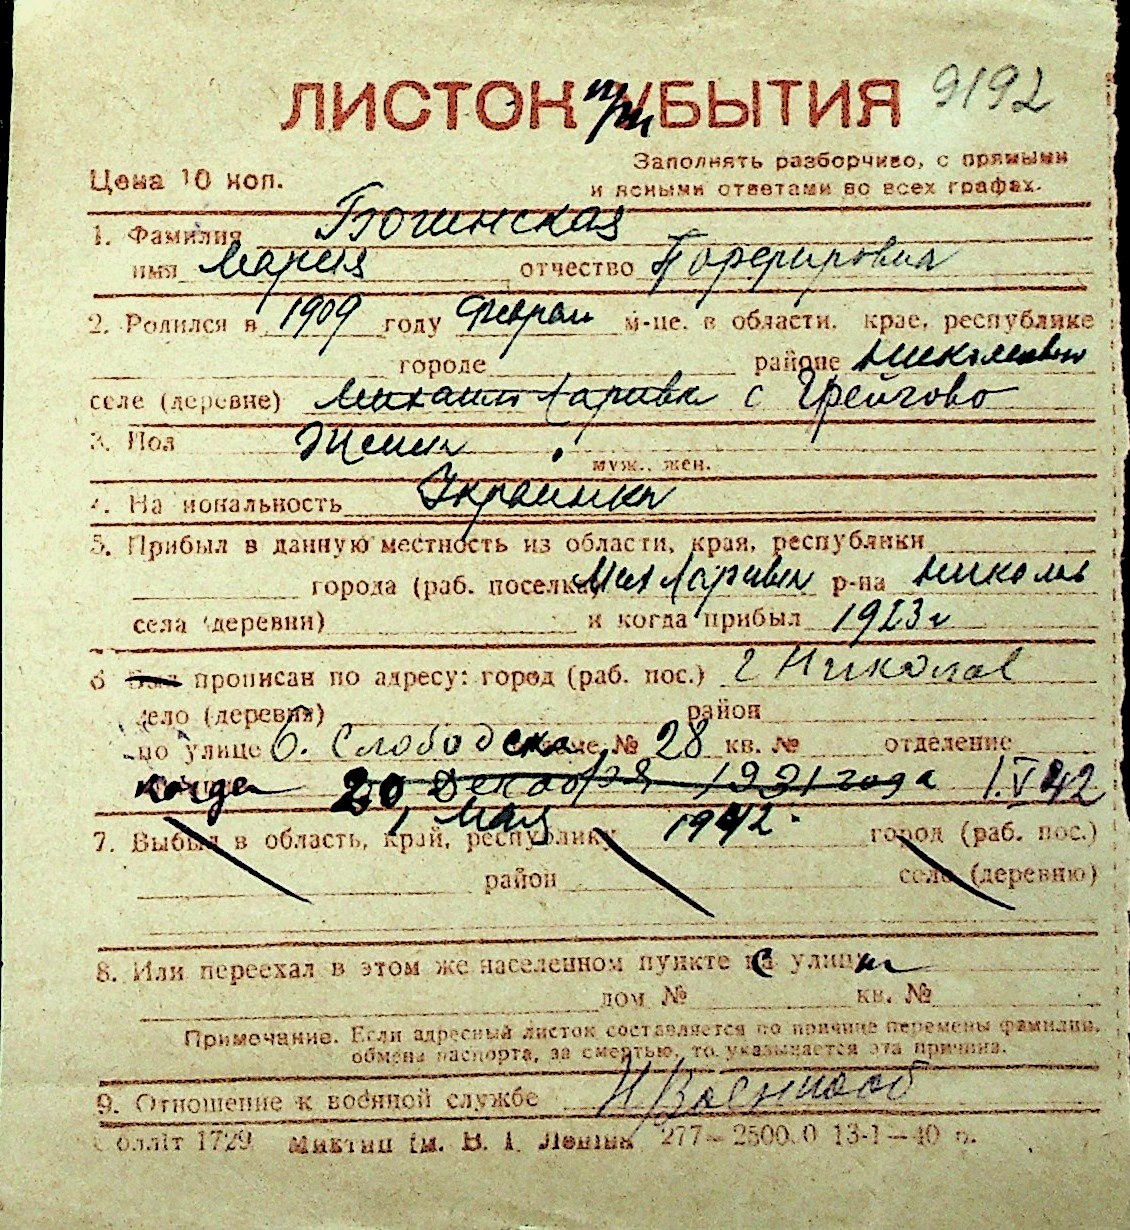 ЛИСТОК при УБЫТИЯ 9192
Цена 10 коп.
Заполнять разборчиво, с прямыми
и ясными ответами во всех графах.
1. Фамилия Богинская
имя Мария отчество Порфировна
2. Родился в 1909 году Феврал м-це, в области, крае, республике
городе районе Николаевск
селе (деревне) Михайло Ларивка с Грейгово
3. Пол Женск
муж., жен.
4. Национальность Украинка
5. Прибыл в данную местность из области, края, республики
города (раб. поселка) Мих Ларивки р-на Николаев
села (деревни) и когда прибыл 1923 г
6 Был прописан по адресу: город (раб. пос.) г Николаев
село (деревня) район
по улице Б. Слободская № 28 кв. № отделение
когда 20 Декабря 1931 года 1.V 42
1 мая 1942.
7. Выбыл в область, край, республику город (раб. пос.)
район село (деревню)
8. Или переехал в этом же населенном пункте с улицы
дом № кв. №
Примечание. Если адресный листок составляется по причине перемены фамилии,
обмена паспорта, за смертью, то указывается эта причина.
9. Отношение к военной службе Н/Военнооб
Обллiт 1729 Миктип iм. В. I. Ленiна 277—25000 13-1—40 р.